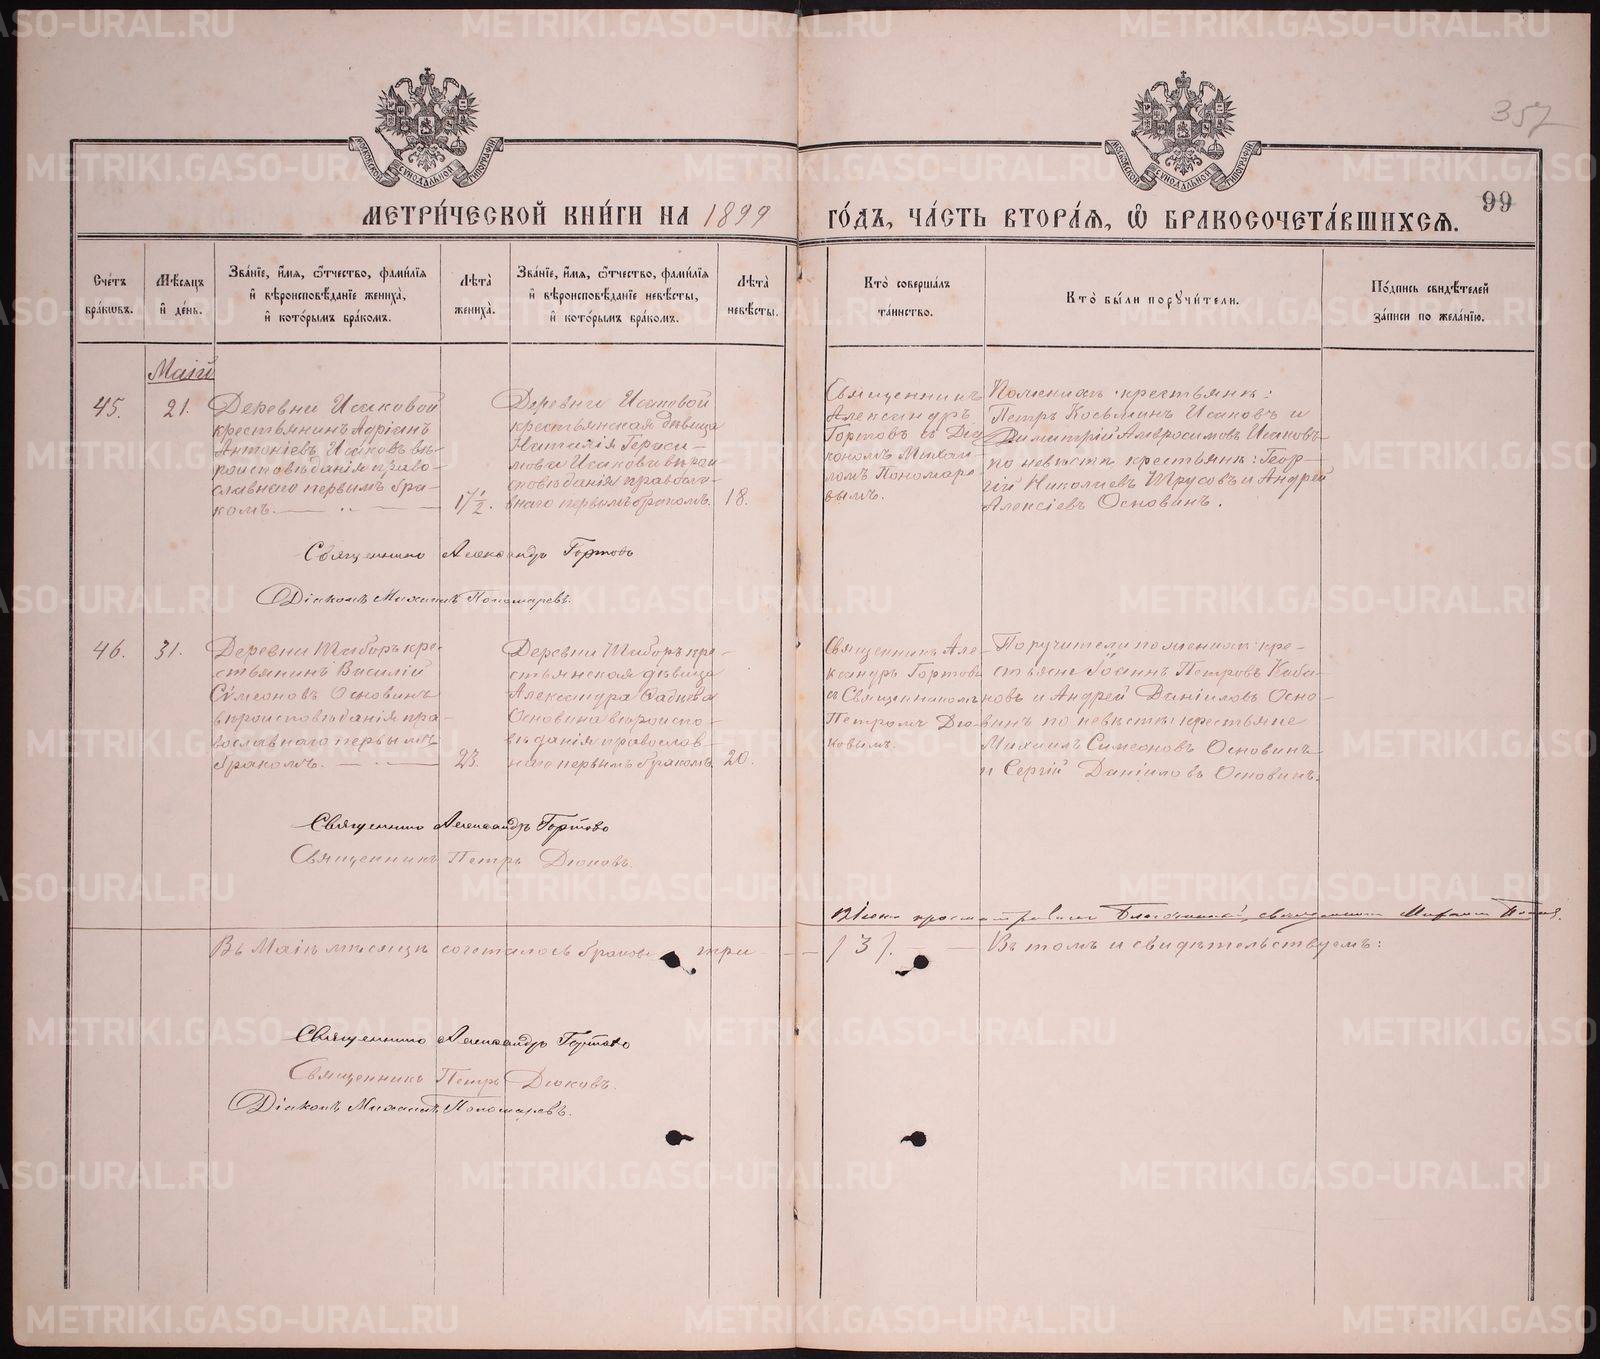 357
99
МЕТРИ́ЧЕСКОЙ КНИ́ГИ НА 1899 ГО́ДЪ, ЧА́СТЬ ВТОРА́Я, Ѿ БРАКОСОЧЕТА́ВШИХСЯ.
Сче́тъ бра́кѡвъ.
Мѣ́сяцъ и҆ де́нь.
Зва́нїе, и҆́мя, ѻ҆́тчество, фами́лїя и҆ вѣроисповѣ́данїе жениха̀, и҆ кото́рымъ бра́комъ.
Лѣ́та жениха̀.
Зва́нїе, и҆́мя, ѻ҆́тчество, фами́лїя и҆ вѣроисповѣ́данїе невѣ́сты, и҆ кото́рымъ бра́комъ.
Лѣ́та невѣ́сты.
Кто̀ соверша́лъ та́инство.
Кто̀ бы́ли порꙋчи́тели.
По́дпись свидѣ́телей за́писи по жела́нїю.
Маій
45.
21.
Деревни Исаковой
крестьянинъ Адріанъ
Антоніевъ Исаковъ вѣ-
роисповѣданія право-
славнаго первымъ бра-
комъ.
17 1/2.
Деревни Исаковой
крестьянская дѣвица
Наталія Гераси-
мова Исакова вѣрои-
сповѣданія правосла-
внаго первымъ бракомъ.
18.
Священникъ
Александръ
Гортовъ съ Діа
кономъ Михаи-
ломъ Пономаре
вымъ.
По женихѣ крестьяне:
Петръ Косьминъ Исаковъ и
Димитрій Амвросимовъ Исаковъ
по невѣстѣ крестьяне: Геор-
гій Николаевъ Трусовъ и Андрей
Алексіевъ Основинъ.
Священникъ Александръ Гортовъ
Діаконъ Михаилъ Пономаревъ.
46.
31.
Деревни Таборъ кре-
стьянинъ Василій
Симеоновъ Основинъ
вѣроисповѣданія пра-
вославнаго первымъ
бракомъ.
23.
Деревни Таборъ кре-
стьянская дѣвица
Александра
Основина вѣроиспо-
вѣданія православ-
наго первымъ бракомъ.
20.
Священникъ Але-
ксандръ Гортовъ
съ Священникомъ
Петромъ Дю-
ковымъ.
Поручители по женихѣ: кре-
стьяне Іоаннъ Петровъ Каба-
новъ и Андрей Даніиловъ Осно-
винъ по невѣстѣ: крестьяне
Михаилъ Симеоновъ Основинъ
и Сергій Даніиловъ Основинъ.
Священникъ Александръ Гортовъ
Священникъ Петръ Дюковъ.
Благочинный, священникъ
Въ Маіѣ мѣсяцѣ сочеталось браковъ три /3/. Въ томъ и свидѣтельствуемъ:
Священникъ Александръ Гортовъ
Священникъ Петръ Дюковъ.
Діаконъ Михаилъ Пономаревъ.
METRIKI.GASO-URAL.RU